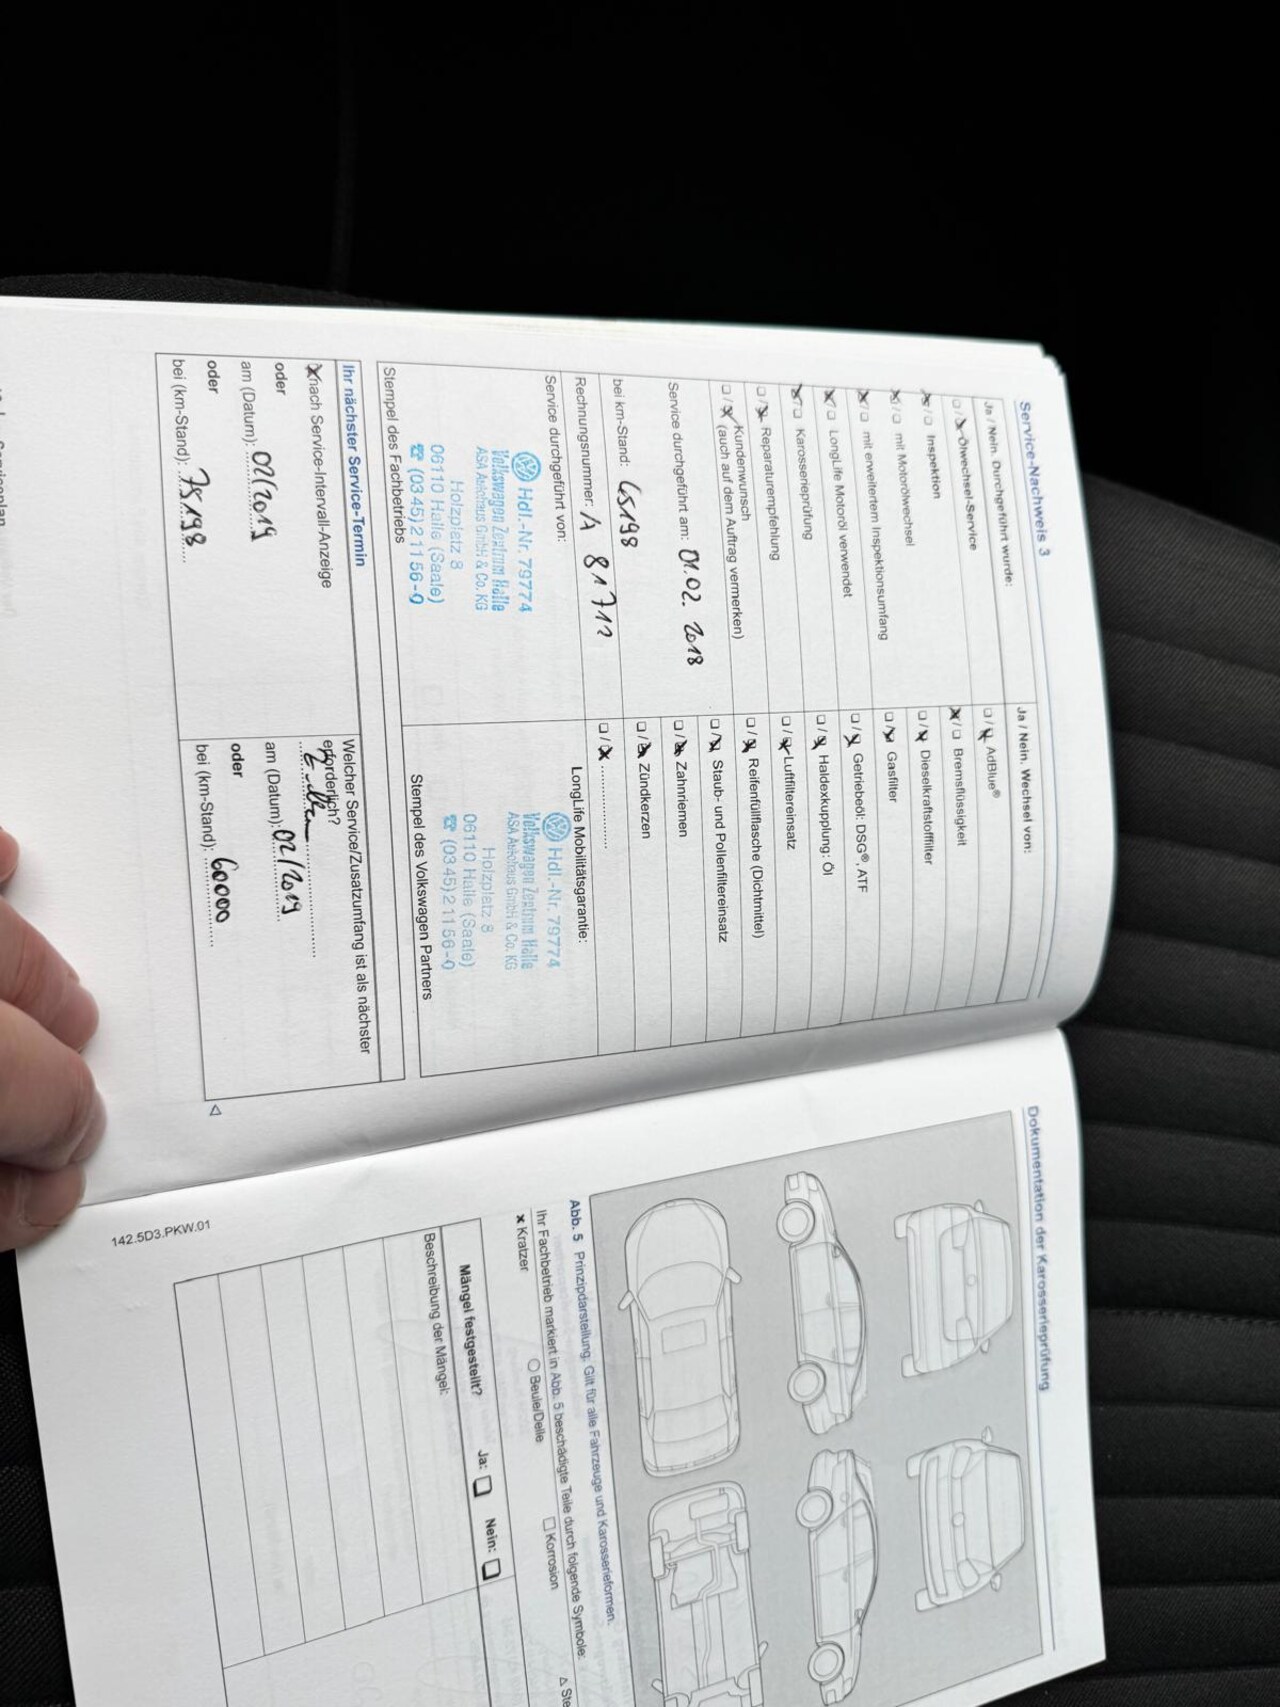 Service-Nachweis 3
Ja / Nein. Durchgeführt wurde:
Ölwechsel-Service
Inspektion
mit Motorölwechsel
mit erweitertem Inspektionsumfang
LongLife Motoröl verwendet
Karosserieprüfung
Reparaturempfehlung
Kundenwunsch
(auch auf dem Auftrag vermerken)
Service durchgeführt am: 01.02. 2018
bei km-Stand: 45198
Rechnungsnummer: A 81712
Service durchgeführt von:
Hdl.-Nr. 79774
Volkswagen Zentrum Halle
ASA Autohaus GmbH & Co. KG
Holzplatz 8
06110 Halle (Saale)
☎ (0345) 2 11 56-0
Stempel des Fachbetriebs
Ja / Nein. Wechsel von:
AdBlue®
Bremsflüssigkeit
Dieselkraftstofffilter
Gasfilter
Getriebeöl: DSG®, ATF
Haldexkupplung: Öl
Luftfiltereinsatz
Reifenfüllflasche (Dichtmittel)
Staub- und Pollenfiltereinsatz
Zahnriemen
Zündkerzen
LongLife Mobilitätsgarantie:
Hdl.-Nr. 79774
Volkswagen Zentrum Halle
ASA Autohaus GmbH & Co. KG
Holzplatz 8
06110 Halle (Saale)
☎ (0345) 2 11 56-0
Stempel des Volkswagen Partners
Ihr nächster Service-Termin
nach Service-Intervall-Anzeige
oder
am (Datum): 02/2019
oder
bei (km-Stand): 75198
Welcher Service/Zusatzumfang ist als nächster
erforderlich?
am (Datum): 02/2019
oder
bei (km-Stand): 60000
Dokumentation der Karosserieprüfung
Abb. 5 Prinzipdarstellung: Gilt für alle Fahrzeuge und Karosserieformen.
Ihr Fachbetrieb markiert in Abb. 5 beschädigte Teile durch folgende Symbole:
× Kratzer ○ Beule/Delle □ Korrosion
Mängel festgestellt? Ja: Nein:
Beschreibung der Mängel:
142.5D3.PKW.01